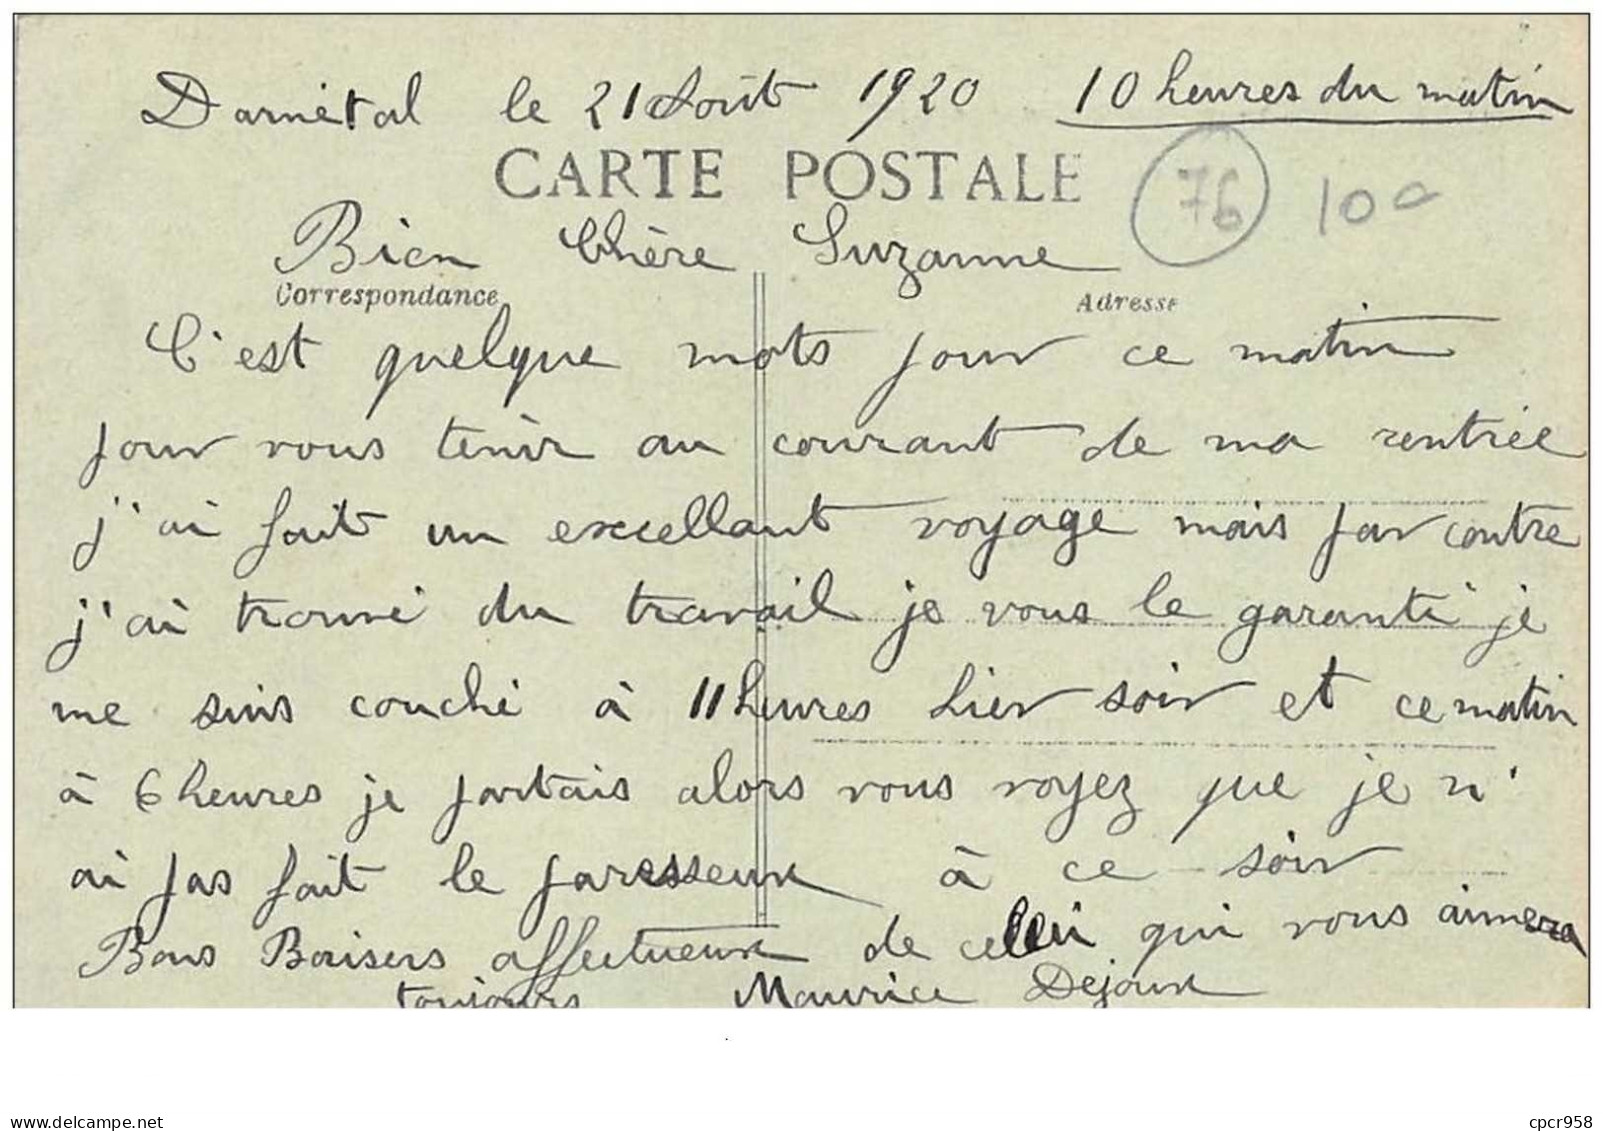 Darnétal le 21 Août 1920 10 heures du matin
CARTE POSTALE
76 10
Bien Chère Suzanne
Correspondance Adresse
C'est quelque mots pour ce matin
pour vous tenir au courant de ma rentrée
j'ai fait un excellant voyage mais par contre
j'ai trouvé du travail je vous le garanti je
me suis couché à 11 heures hier soir et ce matin
à 6 heures je partais alors vous voyez que je n'
ai pas fait le paresseux à ce soir
Bons Baisers affectueux de celui qui vous aimera
toujours Maurice Dejoux
www.delcampe.net cpcr958